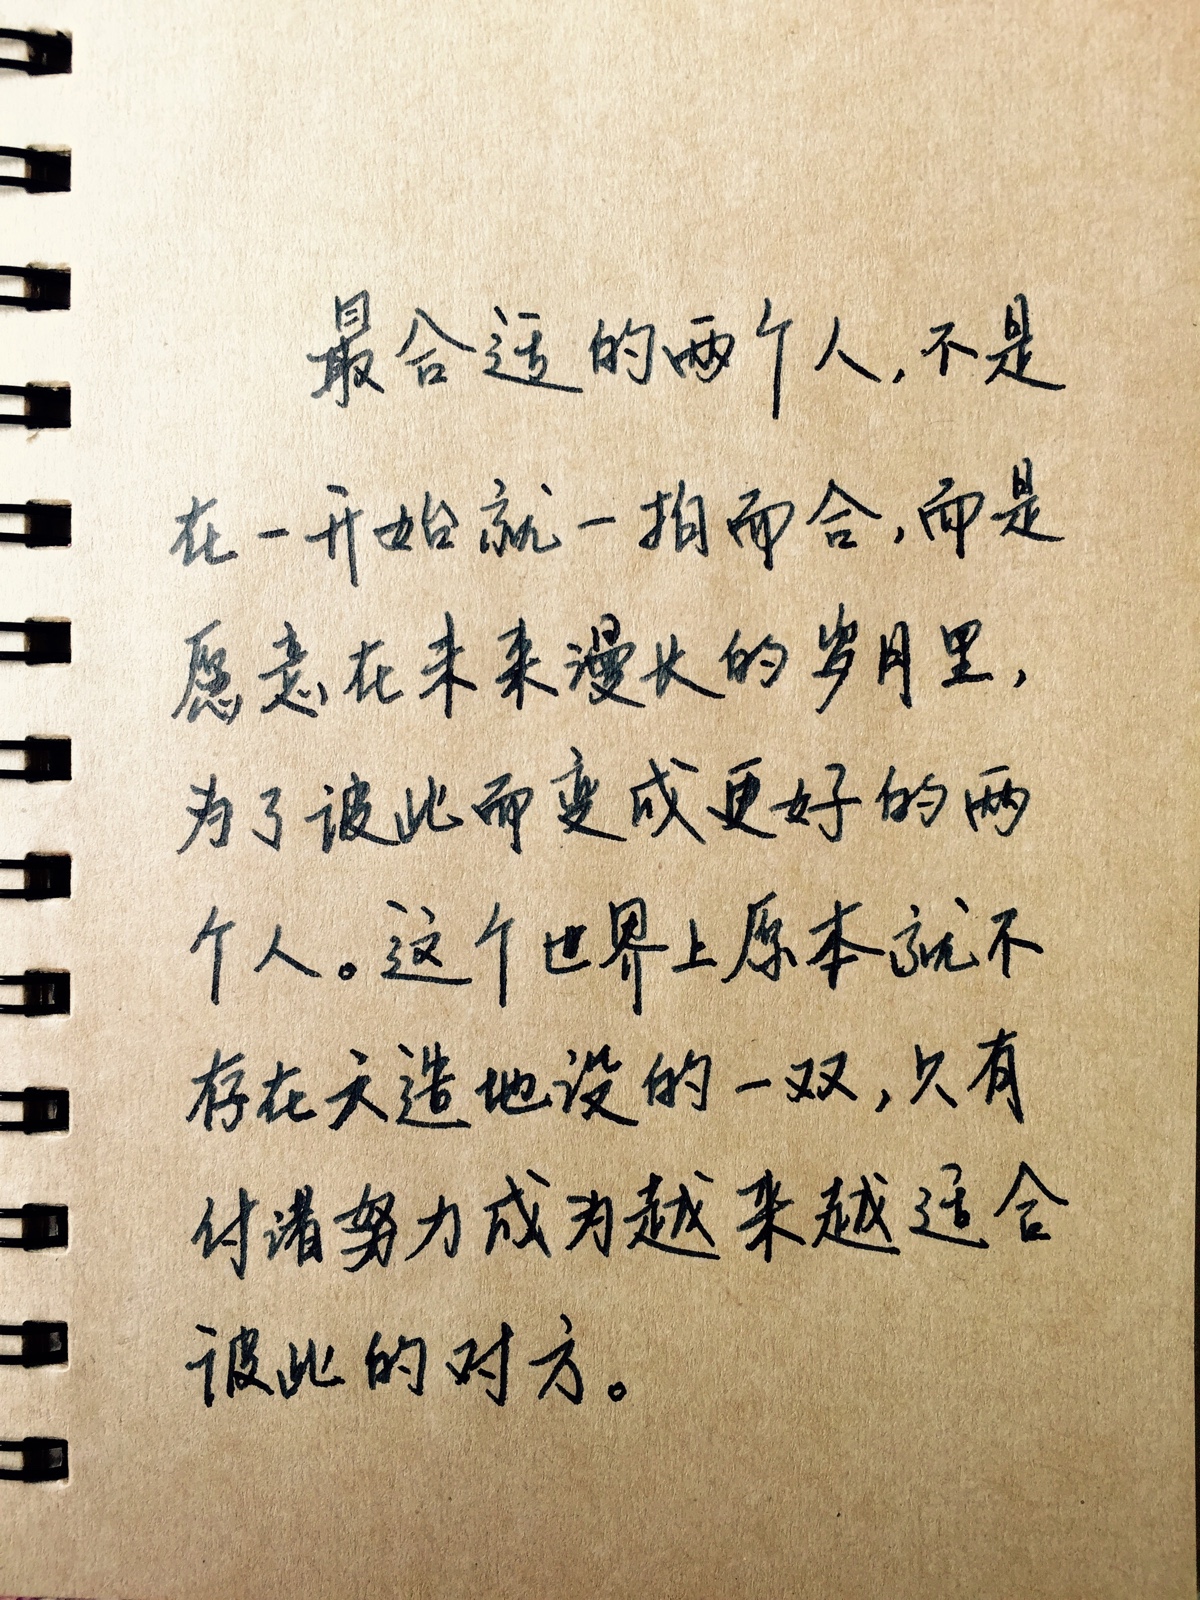 最合适的两个人,不是
在一开始就一拍而合,而是
愿意在未来漫长的岁月里,
为了彼此而变成更好的两
个人。这个世界上原本就不
存在天造地设的一双,只有
付诸努力成为越来越适合
彼此的对方。